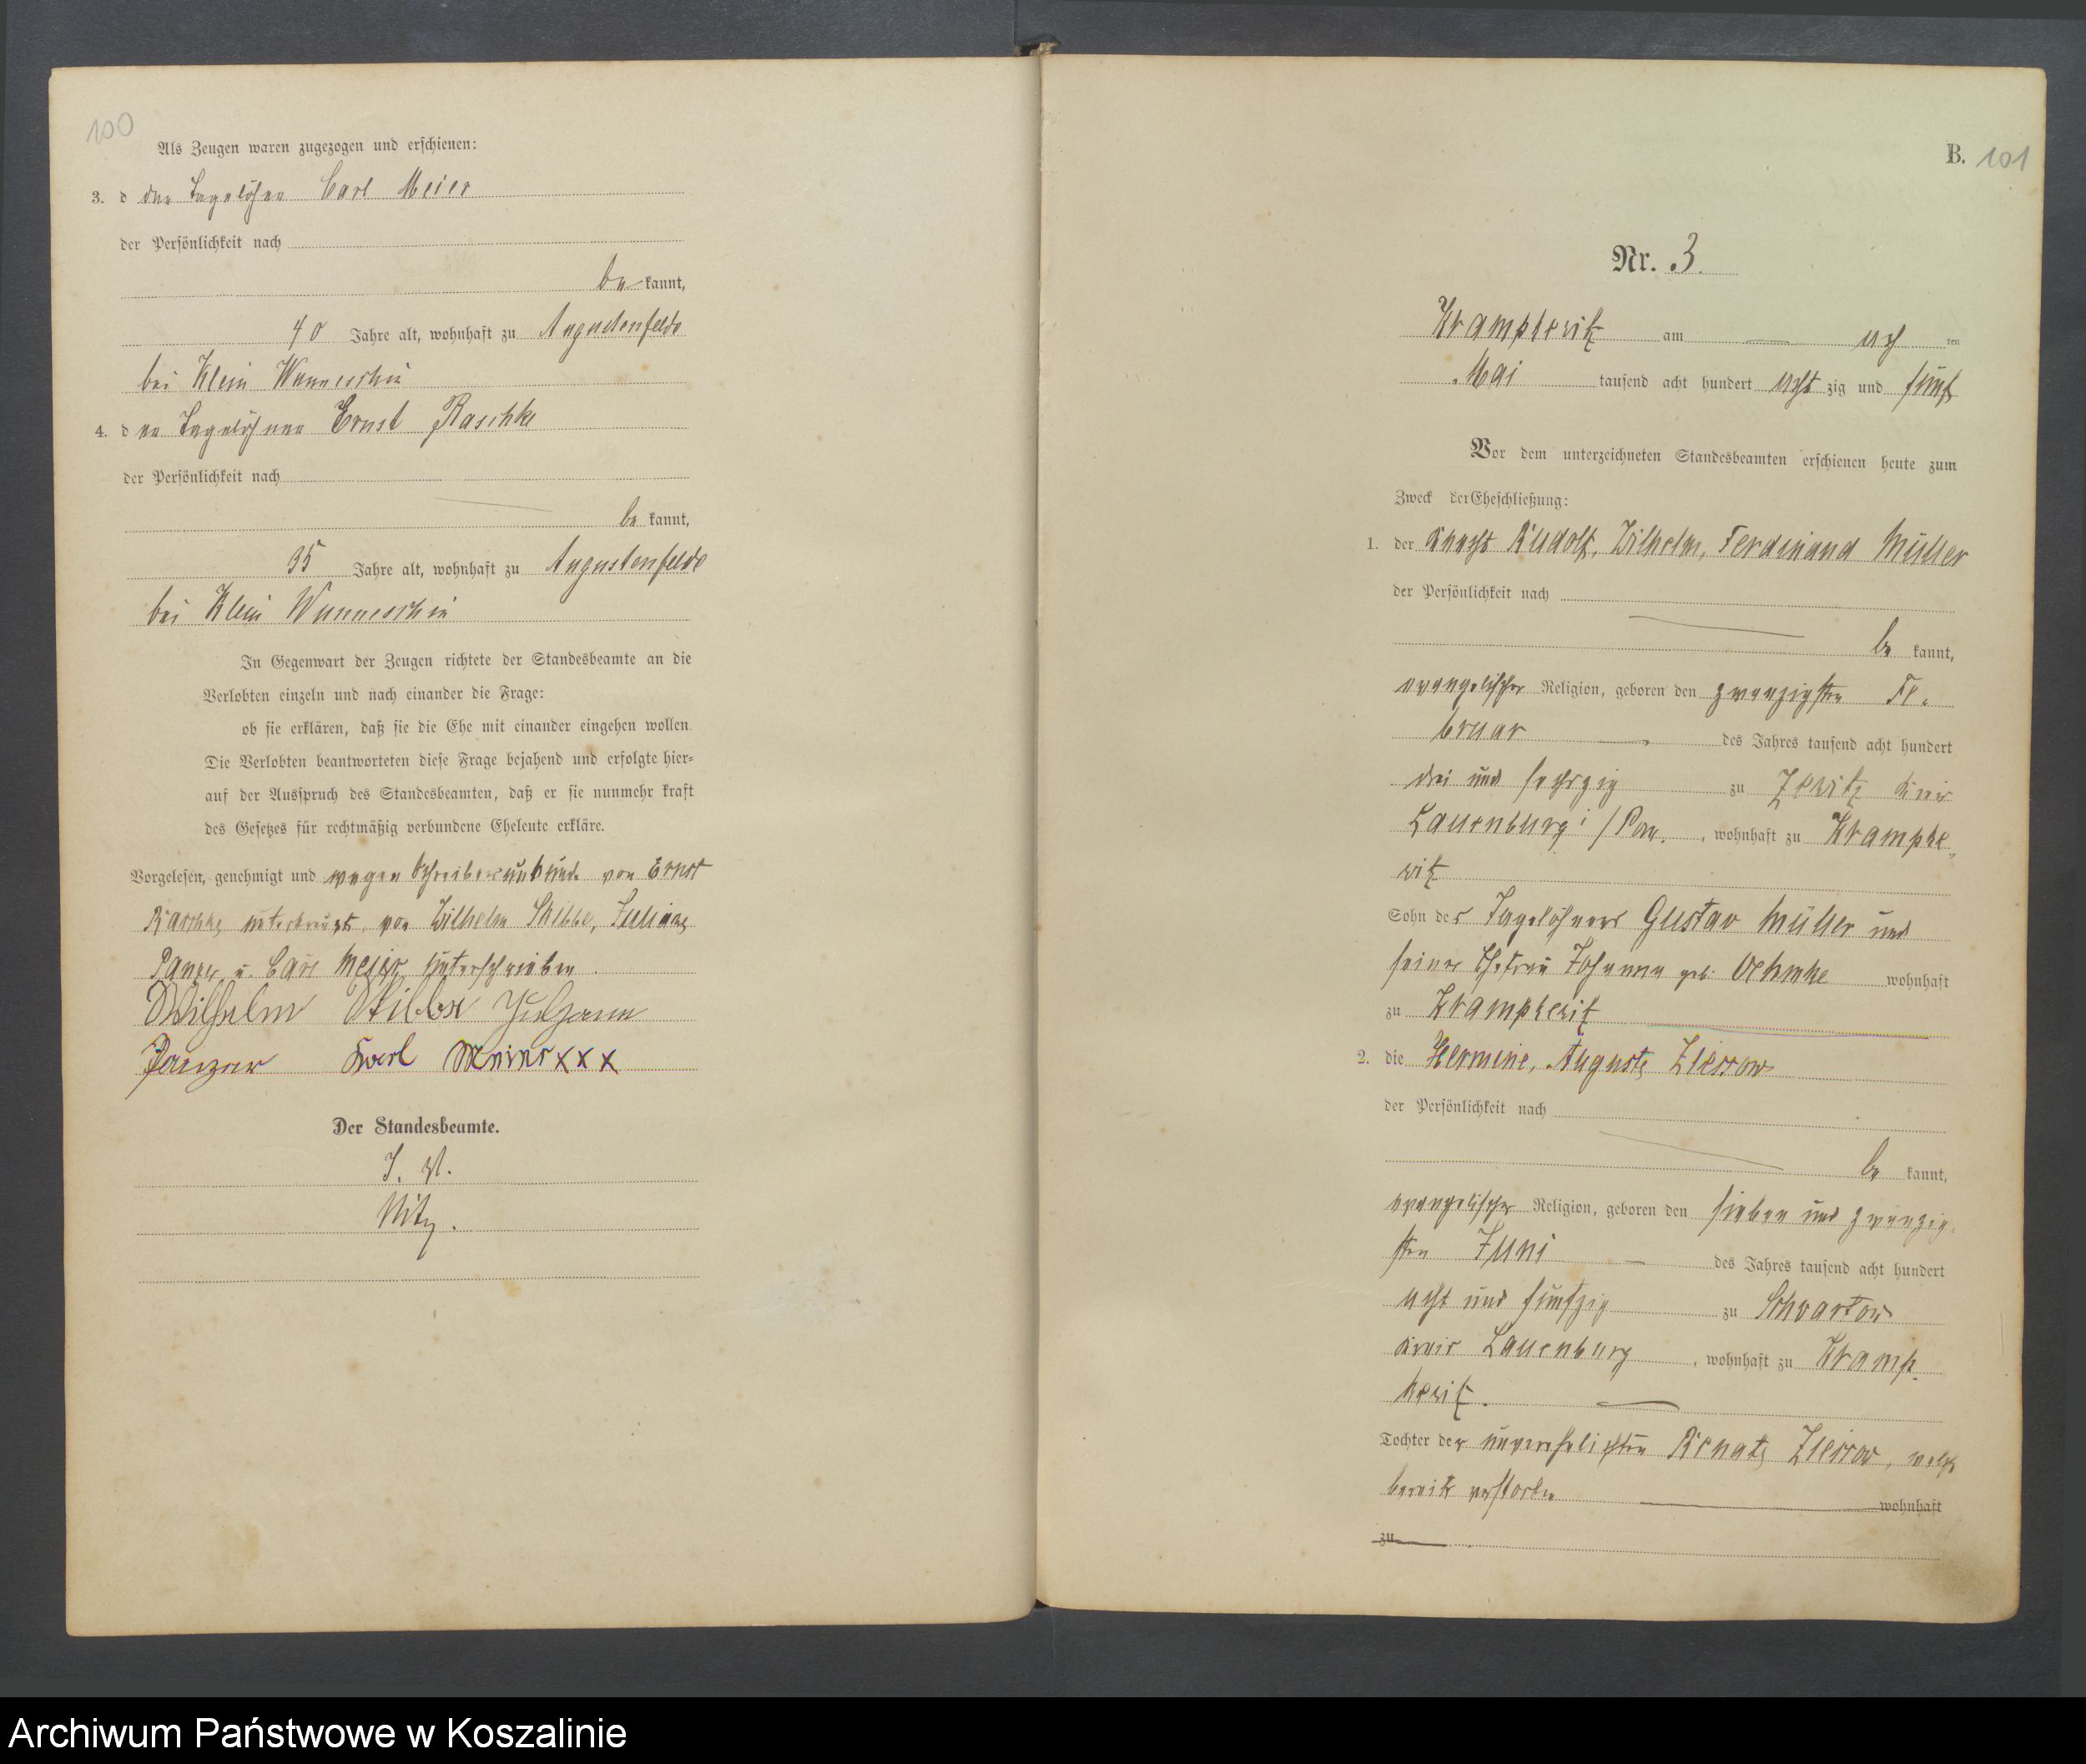 100
Als Zeugen waren zugezogen und erschienen:
3. d der Tagelöhner Carl Meier
der Persönlichkeit nach
be kannt,
40 Jahre alt, wohnhaft zu Augustenfelde
bei Klein Wunneschin
4. d er Tagelöhner Ernst Raschke
der Persönlichkeit nach
be kannt,
35 Jahre alt, wohnhaft zu Augustenfelde
bei Klein Wunneschin
In Gegenwart der Zeugen richtete der Standesbeamte an die
Verlobten einzeln und nach einander die Frage:
ob sie erklären, daß sie die Ehe mit einander eingehen wollen.
Die Verlobten beantworteten diese Frage bejahend und erfolgte hier=
auf der Ausspruch des Standesbeamten, daß er sie nunmehr kraft
des Gesetzes für rechtmäßig verbundene Eheleute erkläre.
Vorgelesen, genehmigt und wegen Schreibensunkunde von Ernst
Raschke unterkreuzt, von Wilhelm Stibbe, Juliane
Panzer, u. Carl Meier unterschrieben.
Wilhelm Stibbe
Panzer Karl Meier xxx
Der Standesbeamte.
J. V.
Nitz.
B. 101
Nr. 3.
Krampkewitz am ten
Mai tausend acht hundert acht zig und fünf
Vor dem unterzeichneten Standesbeamten erschienen heute zum
Zweck der Eheschließung:
1. der Knecht Rudolf, Wilhelm, Ferdinand Müller
der Persönlichkeit nach
be kannt,
evangelischer Religion, geboren den zwanzigsten Fe-
bruar des Jahres tausend acht hundert
drei und sechszig zu Zewitz Kreis
Lauenburg i/Pom., wohnhaft zu Krampke-
witz
Sohn des Tagelöhners Gustav Müller und
seiner Ehefrau Johanna geb. Oehmke wohnhaft
zu Krampkewitz
2. die Hermine, Auguste Ziessow
der Persönlichkeit nach
be kannt,
evangelischer Religion, geboren den sieben und zwanzig-
sten Juni des Jahres tausend acht hundert
acht und fünfzig zu Schwartow
Kreis Lauenburg, wohnhaft zu Kramp-
kewitz.
Tochter der unverehelichten Renate Ziessow, welche
bereits verstorben wohnhaft
zu